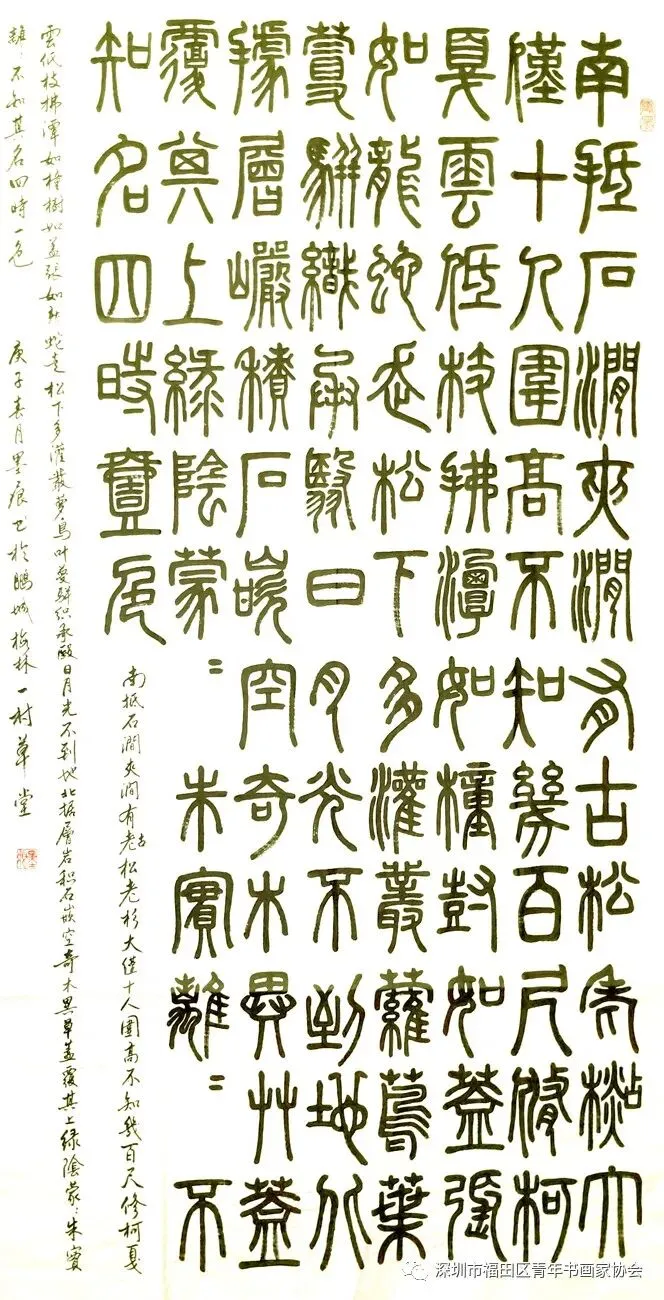 南抵石澗夾澗有古松老杉大
僅十人圍高不知幾百尺修柯
戛雲低枝拂潭如幢尌如蓋張
如龍蛇走松下多灌叢蘿蔦葉
蔓駢織承翳日月光不到地北
據層巖積石嵌空奇木異艸蓋
覆其上綠陰蒙〻朱實離〻不
知名四時壹色
南抵石澗夾澗有老古松老杉大僅十人圍高不知幾百尺修柯戛
雲低枝拂潭如幢樹如盖張如龍蛇走松下多灌叢蘿蔦叶蔓駢织承翳日月光不到地北据層岩积石嵌空奇木異草盖覆其上緑陰蒙〻朱實
離〻不知其名四時一色 庚子春月墨痕书於鵬城梅林一村草堂
深圳市福田区青年书画家协会